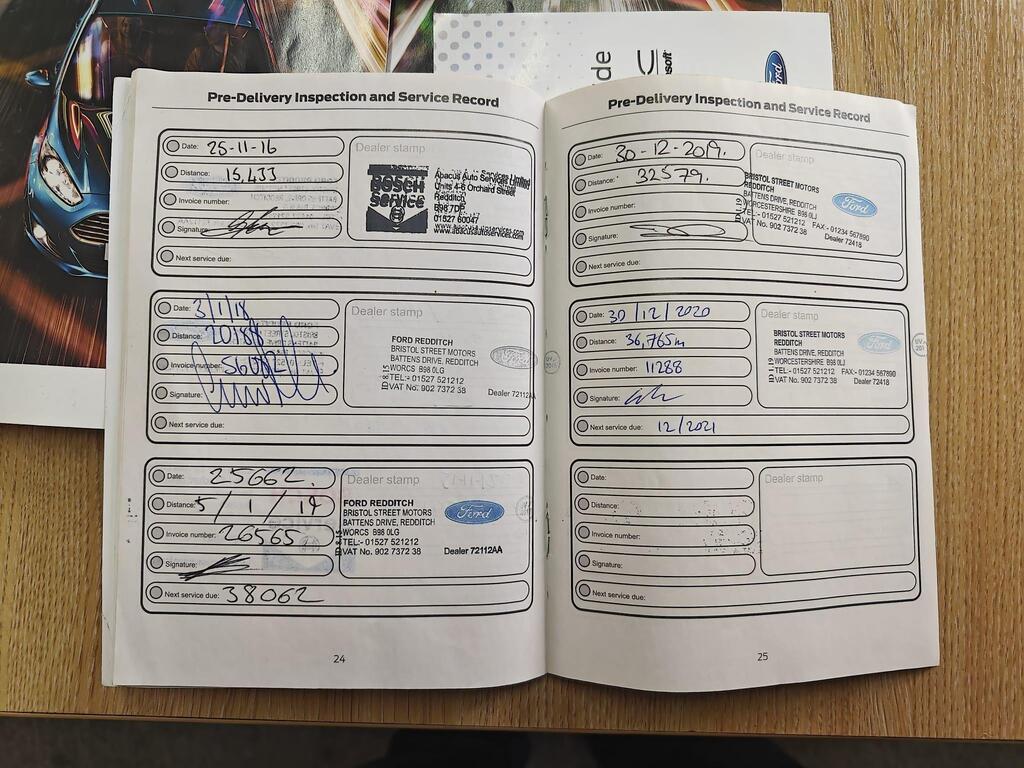 de
soft
Ford
Pre-Delivery Inspection and Service Record
Date: 25-11-16
Distance: 15,433
Invoice number:
Signature:
Next service due:
Dealer stamp
BOSCH
Service
Abacus Auto Services Limited
Units 4-6 Orchard Street
Redditch
B98 7DP
01527 60047
www.abacusautoservices.com
Date: 3/1/18
Distance: 20188
Invoice number: 56082
Signature:
Next service due:
Dealer stamp
FORD REDDITCH
BRISTOL STREET MOTORS
BATTENS DRIVE, REDDITCH
WORCS B98 0LG
TEL:- 01527 521212
VAT No. 902 7372 38 Dealer 72112AA
ID 8.15
Ford
Date: 25662.
Distance: 5/1/19
Invoice number: 26565
Signature:
Next service due: 38062
Dealer stamp
FORD REDDITCH
BRISTOL STREET MOTORS
BATTENS DRIVE, REDDITCH
WORCS B98 0LG
TEL:- 01527 521212
VAT No. 902 7372 38 Dealer 72112AA
ID 8.15
Ford
24
Pre-Delivery Inspection and Service Record
Date: 30-12-2019.
Distance: 32579.
Invoice number:
Signature:
Next service due:
Dealer stamp
BRISTOL STREET MOTORS
REDDITCH
BATTENS DRIVE, REDDITCH
WORCESTERSHIRE B98 0LJ
TEL:- 01527 521212 FAX:- 01234 567890
VAT No. 902 7372 38 Dealer 72418
ID 1.19
Ford
Date: 30/12/2020
Distance: 36,765m
Invoice number: 11288
Signature:
Next service due: 12/2021
Dealer stamp
BRISTOL STREET MOTORS
REDDITCH
BATTENS DRIVE, REDDITCH
WORCESTERSHIRE B98 0LJ
TEL:- 01527 521212 FAX:- 01234 567890
VAT No. 902 7372 38 Dealer 72418
ID 1.19
Ford
Date:
Distance:
Invoice number:
Signature:
Next service due:
Dealer stamp
25